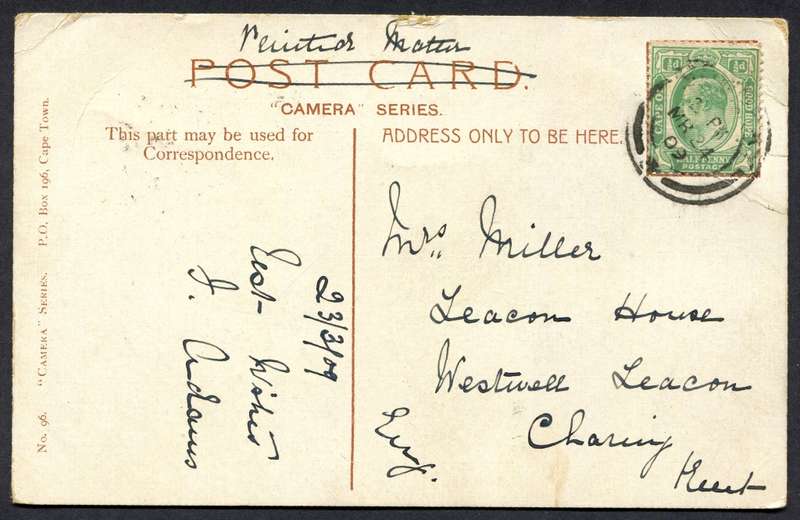 Printed Matter
POST CARD.
"CAMERA" SERIES.
This part may be used for
Correspondence.
ADDRESS ONLY TO BE HERE.
½d ½d
CAPE OF GOOD HOPE
HALF-PENNY
POSTAGE
PM
MR 24
09
Mrs. Miller
Leacon House
Westwell Leacon
Charing
Kent
Eng.
23/3/09
Best Wishes
J. Adams
No. 96. "CAMERA" SERIES. P.O. Box 196, Cape Town.